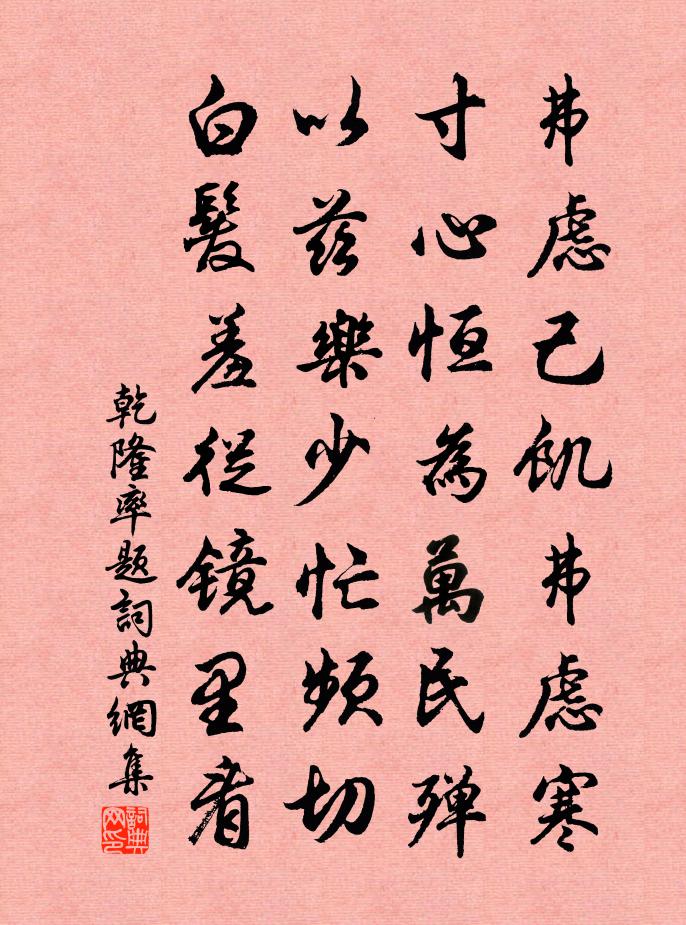 弗慮己飢弗慮寒
寸心恒為萬民殫
以茲樂少忙頻切
白髮羞從鏡里看
乾隆率題詞典網集
詞典网印